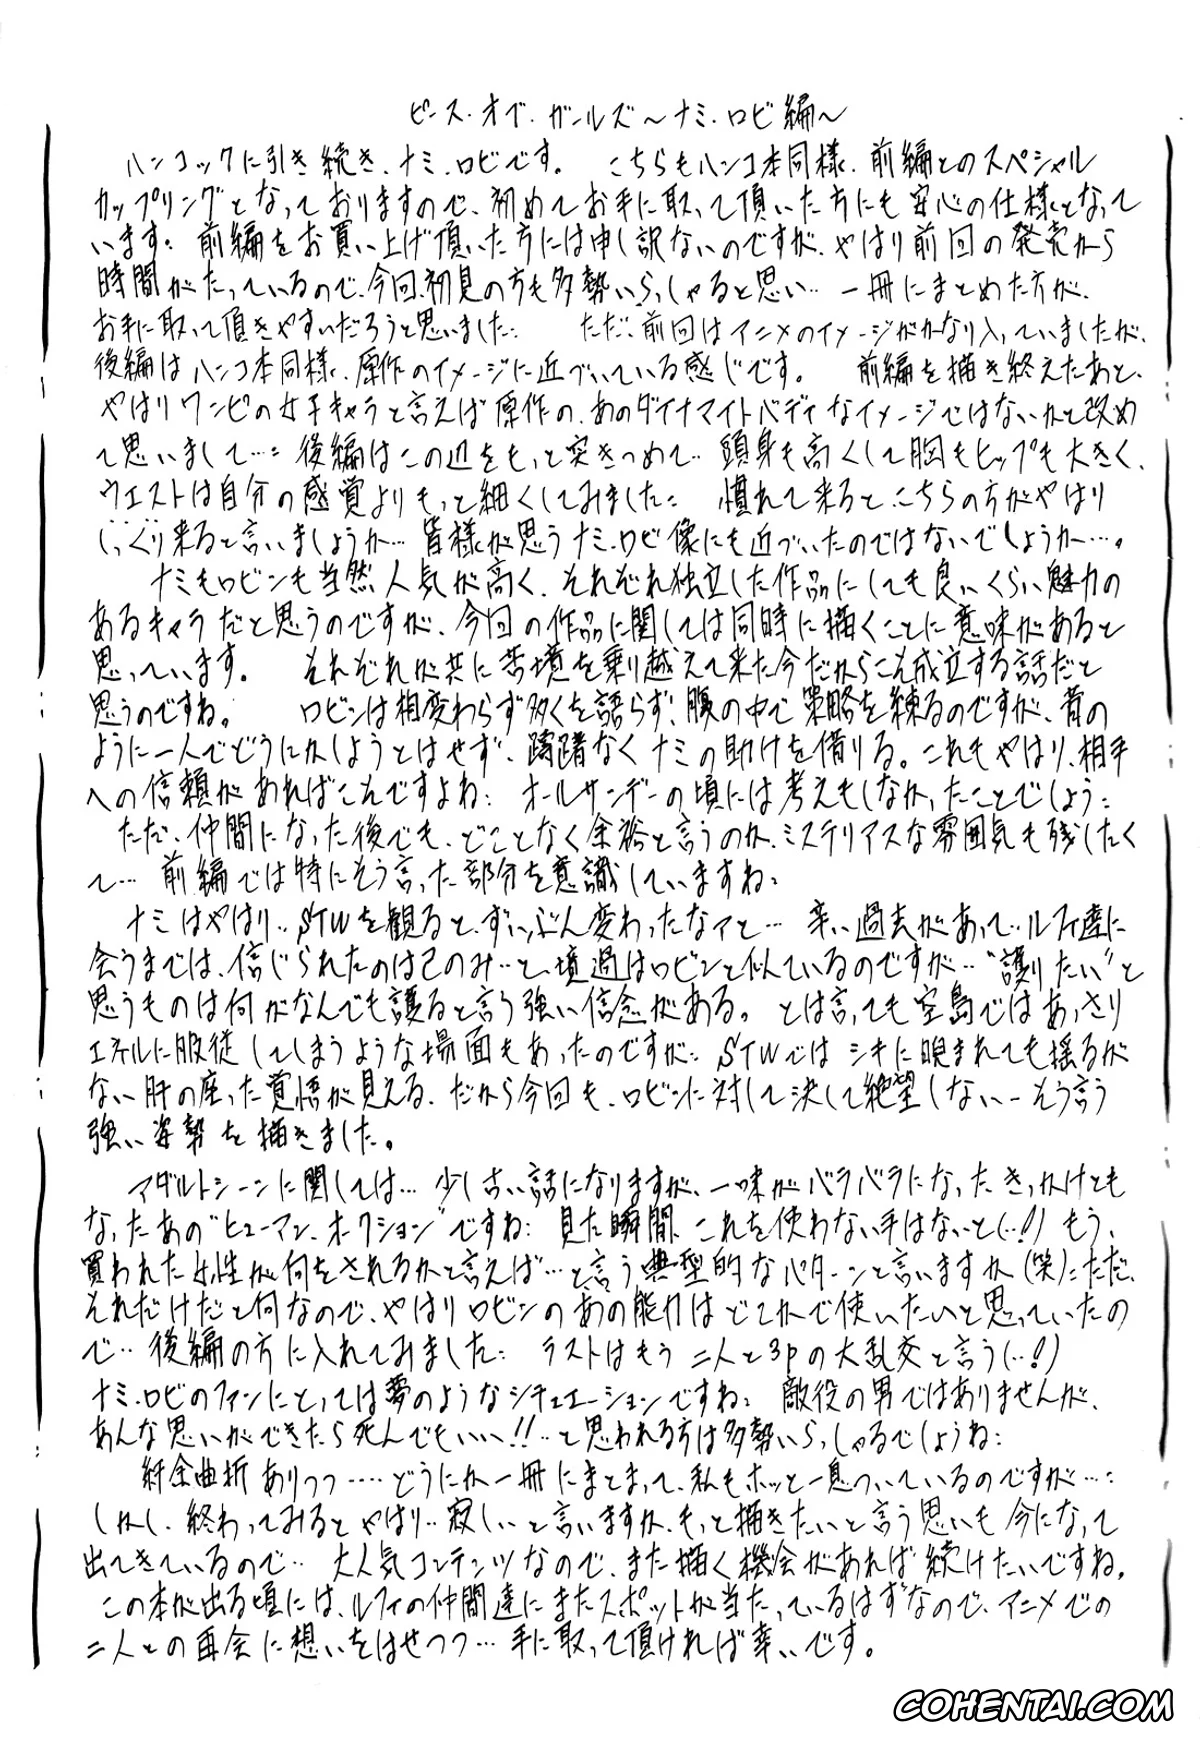 ピース・オブ・ガールズ〜ナミ・ロビ編〜
ハンコックに引き続き、ナミ・ロビです。 こちらもハンコ本同様、前編とのスペシャル
カップリングとなっておりますので、初めてお手に取って頂いた方にも安心の仕様となって
います: 前編をお買い上げ頂いた方には申し訳ないのですが、やはり前回の発売から
時間がたっているので、今回、初見の方も多勢いらっしゃると思い… 一冊にまとめた方が、
お手に取って頂きやすいだろうと思いました: ただ、前回はアニメのイメージがかなり入っていましたが、
後編はハンコ本同様、原作のイメージに近づいている感じです。 前編を描き終えたあと、
やはりワンピの女子キャラと言えば原作の、あのダイナマイトバディなイメージではないかと改め
て思いまして…: 後編はこの辺をもっと突きつめて‥ 頭身も高くして胸もヒップも大きく、
ウエストは自分の感覚よりもっと細くしてみました: 慣れて来ると、こちらの方がやはり
しっくり来ると言いましょうか… 皆様が思うナミ・ロビ像にも近づいたのではないでしょうか…。
ナミもロビンも当然人気が高く、それぞれ独立した作品にしても良いくらい魅力の
あるキャラだと思うのですが、今回の作品に関しては同時に描くことに意味があると
思っています。 それぞれが共に苦境を乗り越えて来た今だからこそ成立する話だと
思うのですね。 ロビンは相変わらず多くを語らず、腹の中で策略を練るのですが、昔の
ように一人でどうにかしようとはせず、躊躇なくナミの助けを借りる。これもやはり、相手
への信頼があればこそですよね: オールサンデーの頃には考えもしなかったことでしょう:
ただ、仲間になった後でも、どことなく余裕と言うのか、ミステリアスな雰囲気も残したく
て… 前編では特にそう言った部分を意識していますね:
ナミはやはり‥STWを観ると、ずいぶん変わったなァと… 辛い過去があって‥ルフィ達に
会うまでは、信じられたのは己のみ‥と、境遇はロビンと似ているのですが‥"護りたい"と
思うものは何がなんでも護ると言う強い信念がある。 とは言っても空島ではあっさり
エネルに服従してしまうような場面もあったのですが: STWではシキに睨まれても揺るが
ない肝の座った覚悟が見える、だから今回も、ロビンに対して決して絶望しない‥そう言う
強い姿勢を描きました。
アダルトシーンに関しては… 少し古い話になりますが、一味がバラバラになったきっかけとも
なったあの"ヒューマン・オークション"ですね: 見た瞬間、これを使わない手はないと(…!) もう、
買われた女性が何をされるかと言えば…と言う典型的なパターンと言いますか(笑): ただ、
それだけだと何なので、やはりロビンのあの能力はどこかで使いたいと思っていたの
で‥ 後編の方に入れてみました: ラストはもう二人と3pの大乱交と言う(…!)
ナミ・ロビのファンにとっては夢のようなシチュエーションですね: 敵役の男ではありませんが、
あんな思いができたら死んでもいい!!‥と思われる方は多勢いらっしゃるでしょうね:
紆余曲折ありつつ‥‥どうにか一冊にまとまって、私もホッと一息ついているのですが…:
しかし、終わってみるとやはり‥寂しいと言いますか、もっと描きたいと言う思いも今になって
出てきているので‥ 大人気コンテンツなので、また描く機会があれば続けたいですね。
この本が出る頃には、ルフィの仲間達にまたスポットが当たっているはずなので、アニメでの
二人との再会に想いをはせつつ…手に取って頂ければ幸いです。
COHENTAI.COM